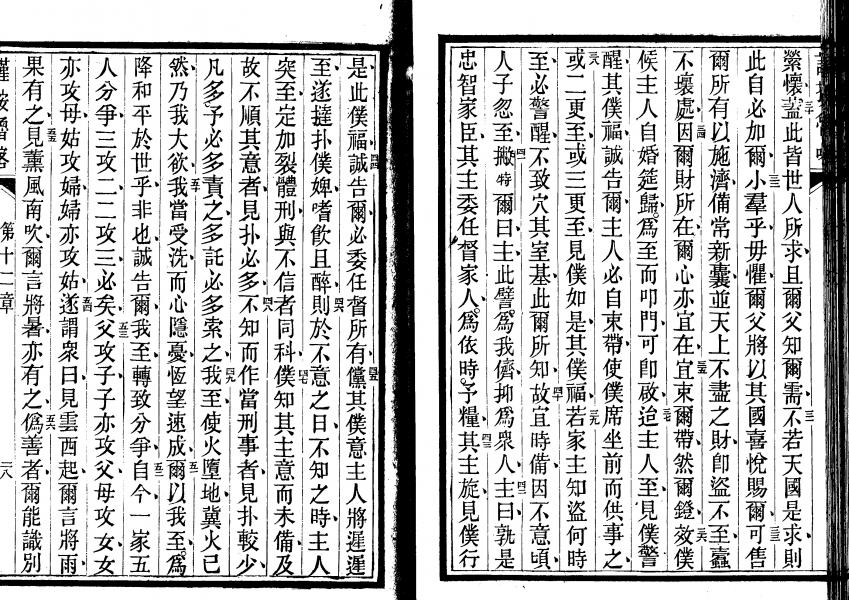 縈懷蓋此皆世人所求且爾父知爾需不若天國是求則
此自必加爾小羣乎毋懼爾父將以其國喜悅賜爾可售
爾所有以施濟備常新囊並天上不盡之財卽盜不至蠹
不壞處因爾財所在爾心亦宜在宜束爾帶然爾鐙效僕
候主人自婚筵歸爲至而叩門可卽啟迨主人至見僕警
醒其僕福誠告爾主人必自束帶使僕席坐前而供事之
或二更至或三更至見僕如是其僕福若家主知盜何時
至必警醒不致穴其室基此爾所知故宜時備因不意頃
人子忽至撇特爾曰主此譬爲我儕抑爲衆人主曰孰是
忠智家臣其主委任督家人爲依時予糧其主旋見僕行
是此僕福誠告爾必委任督所有儻其僕意主人將遲遲
至遂撻扑僕婢嗜飮且醉則於不意之日不知之時主人
突至定加裂體刑與不信者同科僕知其主意而未備及
故不順其意者見扑必多不知而作當刑事者見扑較少
凡多予必多責之多託必多索之我至使火墮地冀火已
然乃我大欲我當受洗而心隱憂恆望速成爾以我至爲
降和平於世乎非也誠告爾我至轉致分爭自今一家五
人分爭三攻二二攻三必矣父攻子子亦攻父母攻女女
亦攻母姑攻婦婦亦攻姑遂謂衆曰見雲西起爾言將雨
果有之見薰風南吹爾言將暑亦有之僞善者爾能識別
第十二章
二八